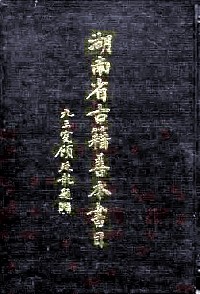 湖南省古籍善本書目
九五叟顧廷龍題